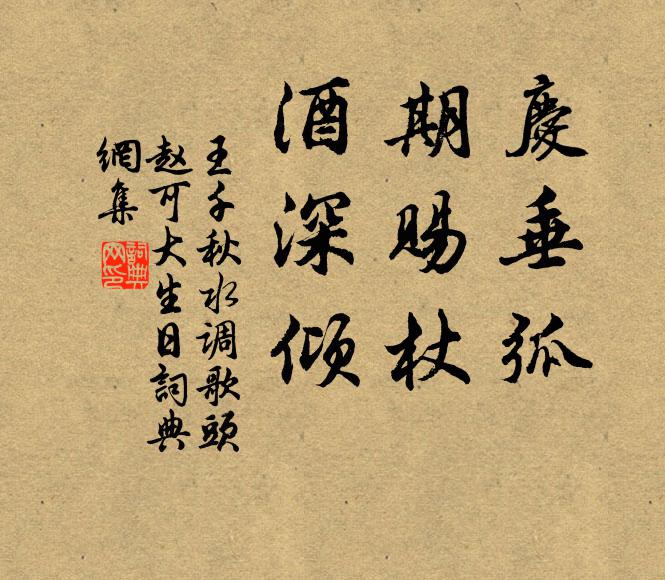 慶垂弧
期賜杖
酒深傾
王千秋水调歌頭
赵可大生日詞典
網集
詞典
网印